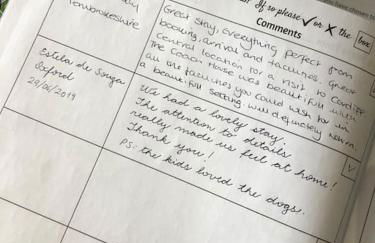 If so please ✓ or X the box
Comments
Pembrokeshire
Great Stay, Everything perfect from
booking, arrival and facilities. Great
central location for a visit to Cardiff
The Coach House was beautiful with
all the facilities you could wish for in
a beautiful setting. Will definitely return.
Estela de Souza
Oxford
29/06/2019
We had a lovely stay.
The attention to details
really made us feel at home!
Thank you!
PS: the kids loved the dogs.